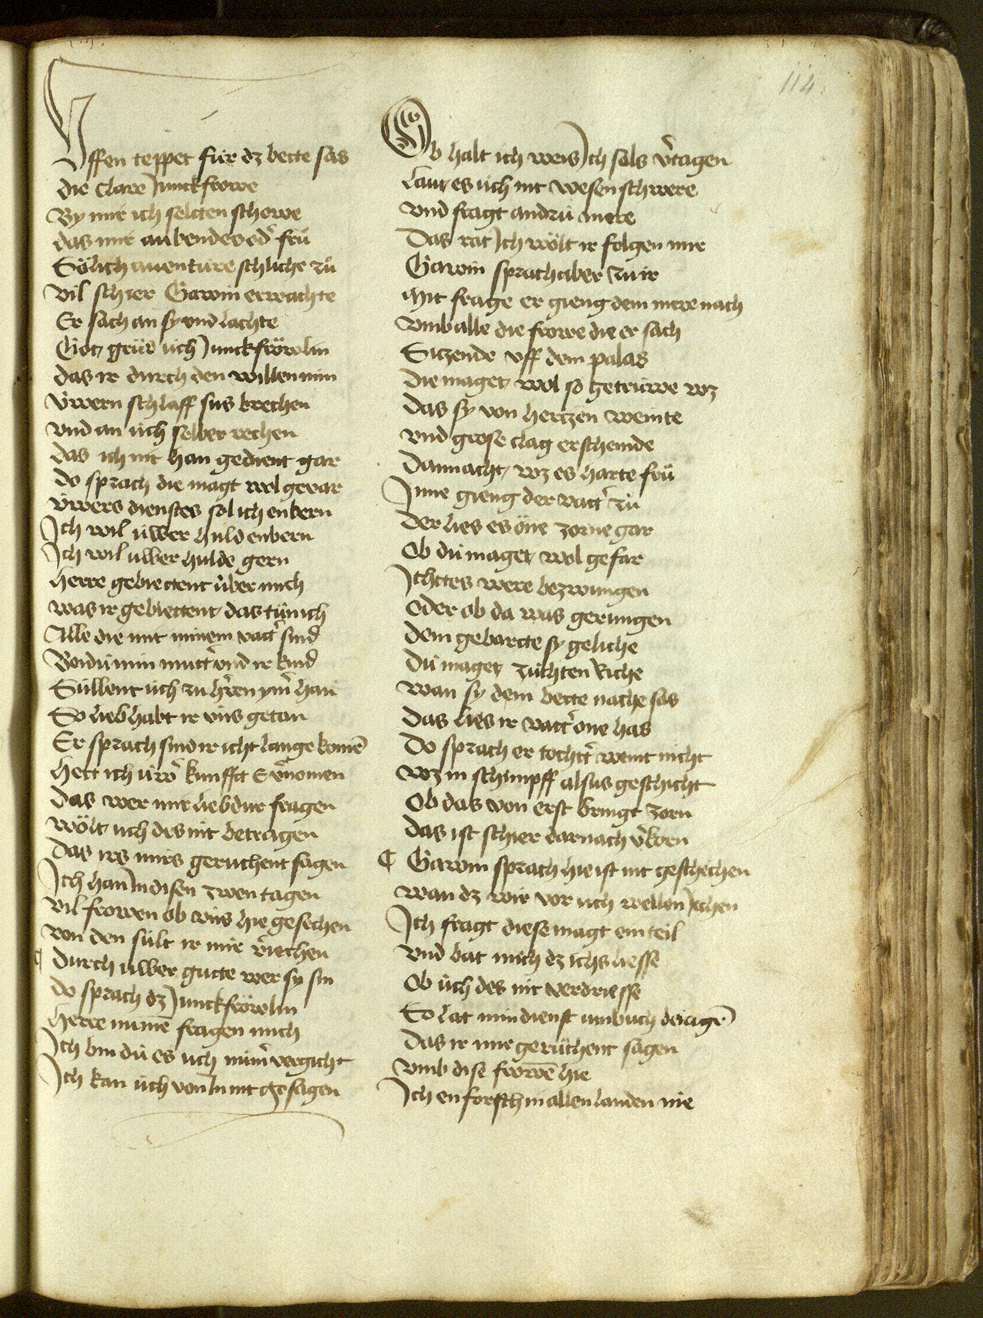 114
Vffen teppet für dz bette sas
die clare Junckfrowe
By mir ich selcten schowe
das mir aubendes od' frü
Sölich auenture schliche zü
Vil schier Gawin erwachte
Er sach an sy vnd lachte
Got grüs üch Junckfröwlin
das ir durch den willen min
üwern schlaff sus brechen
vnd an üch selber rechen
das ich nit han gedient gar
do sprach die magt wol gevar
üwers dienstes sol ich enbern
Ich wil üwer huld enbern
Ich wil uwer hulde gern
herre gebiettent über mich
was ir gebiettent das tün ich
Alle die mit minem vatt' sind
Beidü min mutt' vnd ir kind
Süllent üch zu h'ren ym' han
So lieb habt ir vns getan
Er sprach sind ir icht lange komē
Hett ich üw' kunfft E v'nomen
das wer mir lieb dur fragen
wölt uch des nit betragen
Das irs mirs geruchent sagen
Ich han In disen zwen tagen
vil frowen ob mirs hie gesechen
von den sült ir mir v'iechen
durch uwer gutte wer sy sin
do sprach dz Junckfröwlin
herre nimē fragen mich
Ich bin dü es uch nim' vergicht
Ich kan üch von In nit gesagen
Ob halt ich weis Ich sols v'tagen
Laut es üch nit wesen schwere
vnd fragt andrü mere
Das rat Ich wölt ir folgen mir
Gawin sprach aber zu ir
mit frage er gieng dem mere nach
vmb alle die frowe die er sach
Sitzende vff dem palas
die maget wol so getrüwe wz
das sy von hertzen weinte
vnd grose clag erscheinde
Dannacht wz es harte frü
Inne gieng der vatt' zü
der lies es öne zorne gar
Ob dü maget wol gefar
Ichttes were bezwungen
oder ob da was gerungen
dem gebarete sy geliche
Dü maget züchten riche
wan sy dem bette nache sas
das lies ir vatt' one has
Do sprach er tocht' weint nicht
wz in schimpff alsus geschicht
Ob das von erst bringt zorn
das ist schier darnach v'korn
¶ Gawin sprach hie ist nit geschechen
wan dz wir vor uch wellen Jechen
Ich fragt diese magt ein teil
vnd bat mich dz ichs liesse
Ob üch des nit verdriesse
So lat min dienst umb uch beiagē
Das ir mir gerüchent sagen
vmb dise frowē hie
Ich enforsch in allen landen nie